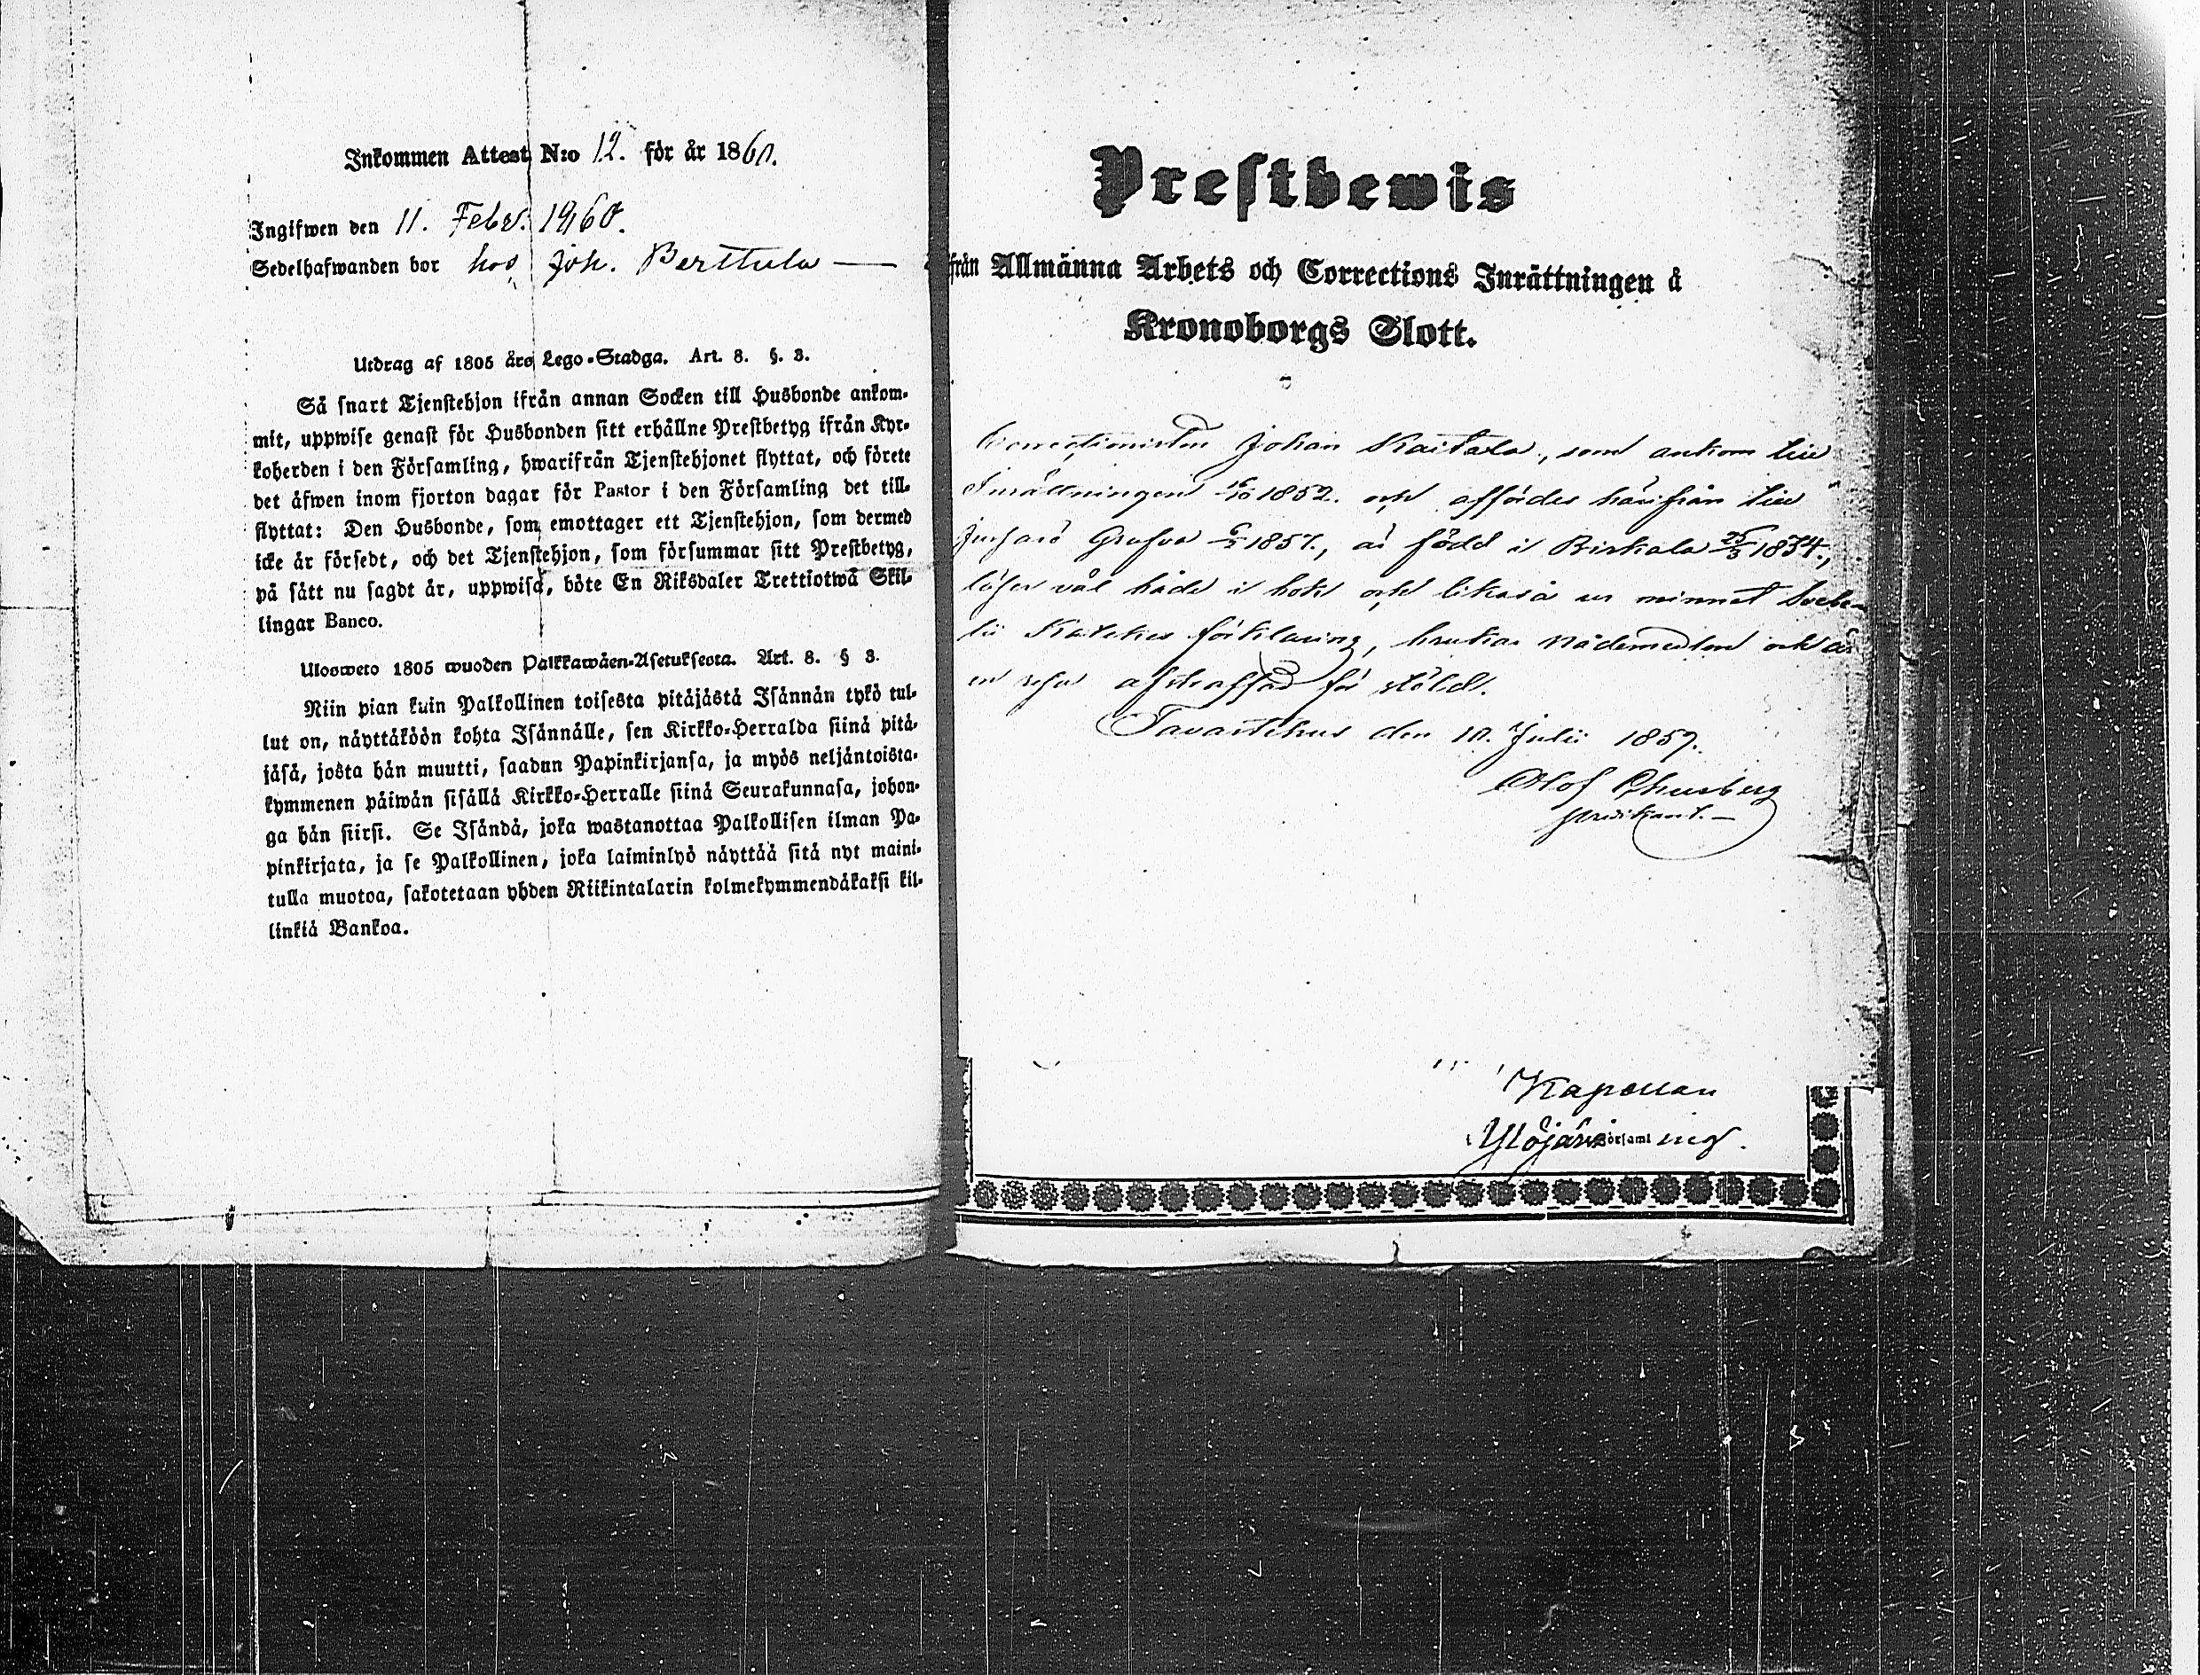 Inkommen Attest N:o 12. för år 1860.
Ingifwen den 11. Febr. 1860.
Sedelhafwanden bor hos Joh. Berttula —
Utdrag af 1805 års Lego-Stadga. Art. 8. §. 3.
Så snart Tjenstehjon ifrån annan Socken till Husbonde ankom-
mit, uppwise genast för Husbonden sitt erhållne Prestbetyg ifrån Kyr-
koherden i den Församling, hwarifrån Tjenstehjonet flyttat, och förete
det äfwen inom fjorton dagar för Pastor i den Församling det till-
flyttat: Den Husbonde, som emottager ett Tjenstehjon, som dermed
icke är försedt, och det Tjenstehjon, som försummar sitt Prestbetyg,
på sätt nu sagdt är, uppwisa, böte En Riksdaler Trettiotwå Skil-
lingar Banco.
Ulosweto 1805 wuoden Palkkawäen-Asetuksesta. Art. 8. § 3.
Niin pian kuin Palkollinen toisesta pitäjästä Isännän tykö tul-
lut on, näyttäköön kohta Isännälle, sen Kirkko-Herralda siinä pitä-
jäsä, josta hän muutti, saadun Papinkirjansa, ja myös neljäntoista-
kymmenen päiwän sisällä Kirkko-Herralle siinä Seurakunnasa, johon-
ga hän siirsi. Se Isändä, joka wastanottaa Palkollisen ilman Pa-
pinkirjata, ja se Palkollinen, joka laiminlyö näyttää sitä nyt maini-
tulla muotoa, sakotetaan yhden Riikintalarin kolmekymmendäkaksi kil-
linkiä Bankoa.
Prestbewis
från Allmänna Arbets och Corrections Inrättningen å
Kronoborgs Slott.
Correctionisten Johan Kaitala, som ankom till
Inrättningen 1852. och affördes härifrån till
Grufva 1857., är född i Birkala 25/3 1834.,
läser väl både i bok och likaså ur minnet
Kateches förklaring, brukar Nådemedlen och är
en resa afstraffad för stöld.
Tavastehus den 10. Julii 1857.
Olof
Predikant.
Kapellan
Ylöjärvi församling.